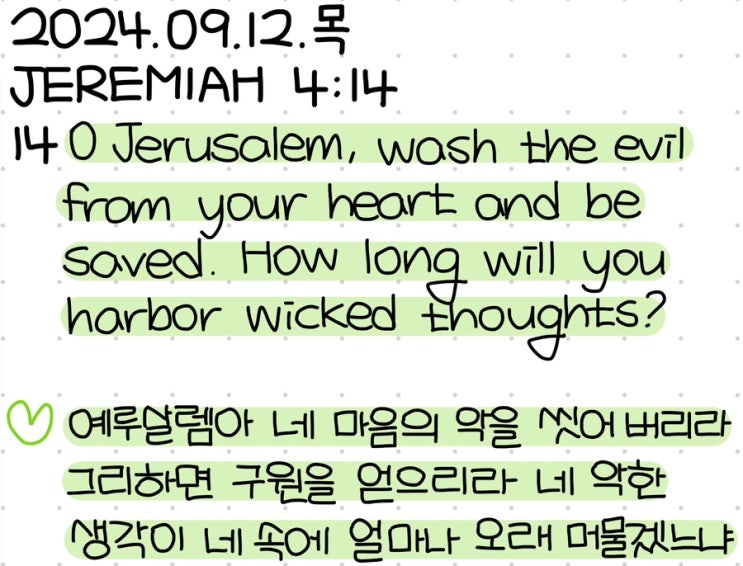 2024.09.12.목
JEREMIAH 4:14
14 O Jerusalem, wash the evil
from your heart and be
saved. How long will you
harbor wicked thoughts?
예루살렘아 네 마음의 악을 씻어 버리라
그리하면 구원을 얻으리라 네 악한
생각이 네 속에 얼마나 오래 머물겠느냐